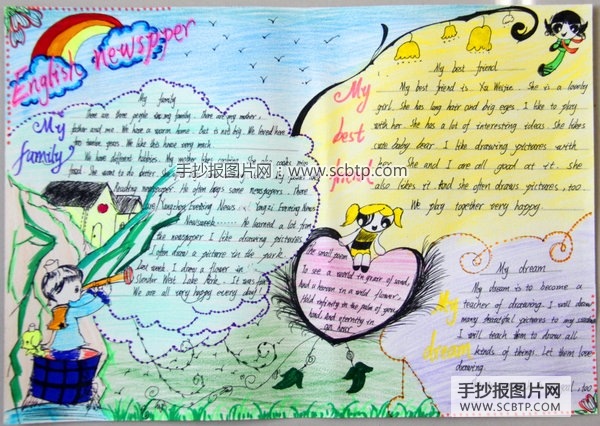 English newspper
My family
My family
There are three people in my family. There are my mother,
father and me. We have a warm home. But is not big. We loved here
has twelve years. We like this have very much.
We have different hobbies. My mother likes
food. She want to do better. S
Reading newspaper. He often buys some newspapers. There
are Yangzhou Evening News. Yangzi Evening News
Newsweek...... He learned a lot from
the newspaper I like drawing pictures
I often draw a picture in the park
Last week I drew a flower in
Slender West Lake Park. It was fun
We are all very happy every day!
手抄报图片网:www.scbtp.com
My best friend
My best friend
My best friend is Xu Weijie. She is a lovely
girl. She has long hair and big eyes. I like to play
with her. She has a lot of interesting ideas. She likes
cute baby dear. I like drawing pictures with
her. She and I are all good at it. She
also likes it And she often draws pictures, too.
We play together very happy.
small poem
To see a world in grain of sand,
And a heaven in a wild flower,
Hold infinity in the palm of your
hand And eternity in
an hour
My dream
My dream
My dream is to become a
teacher of drawing. I will draw
many beautiful pictures to my
I will teach them to draw all
kinds of things. Let them love
drawing.
too
手抄报图片网
WWW.SCBTP.COM